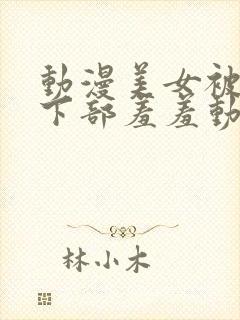 動漫美女被
下部羞羞動
林小木